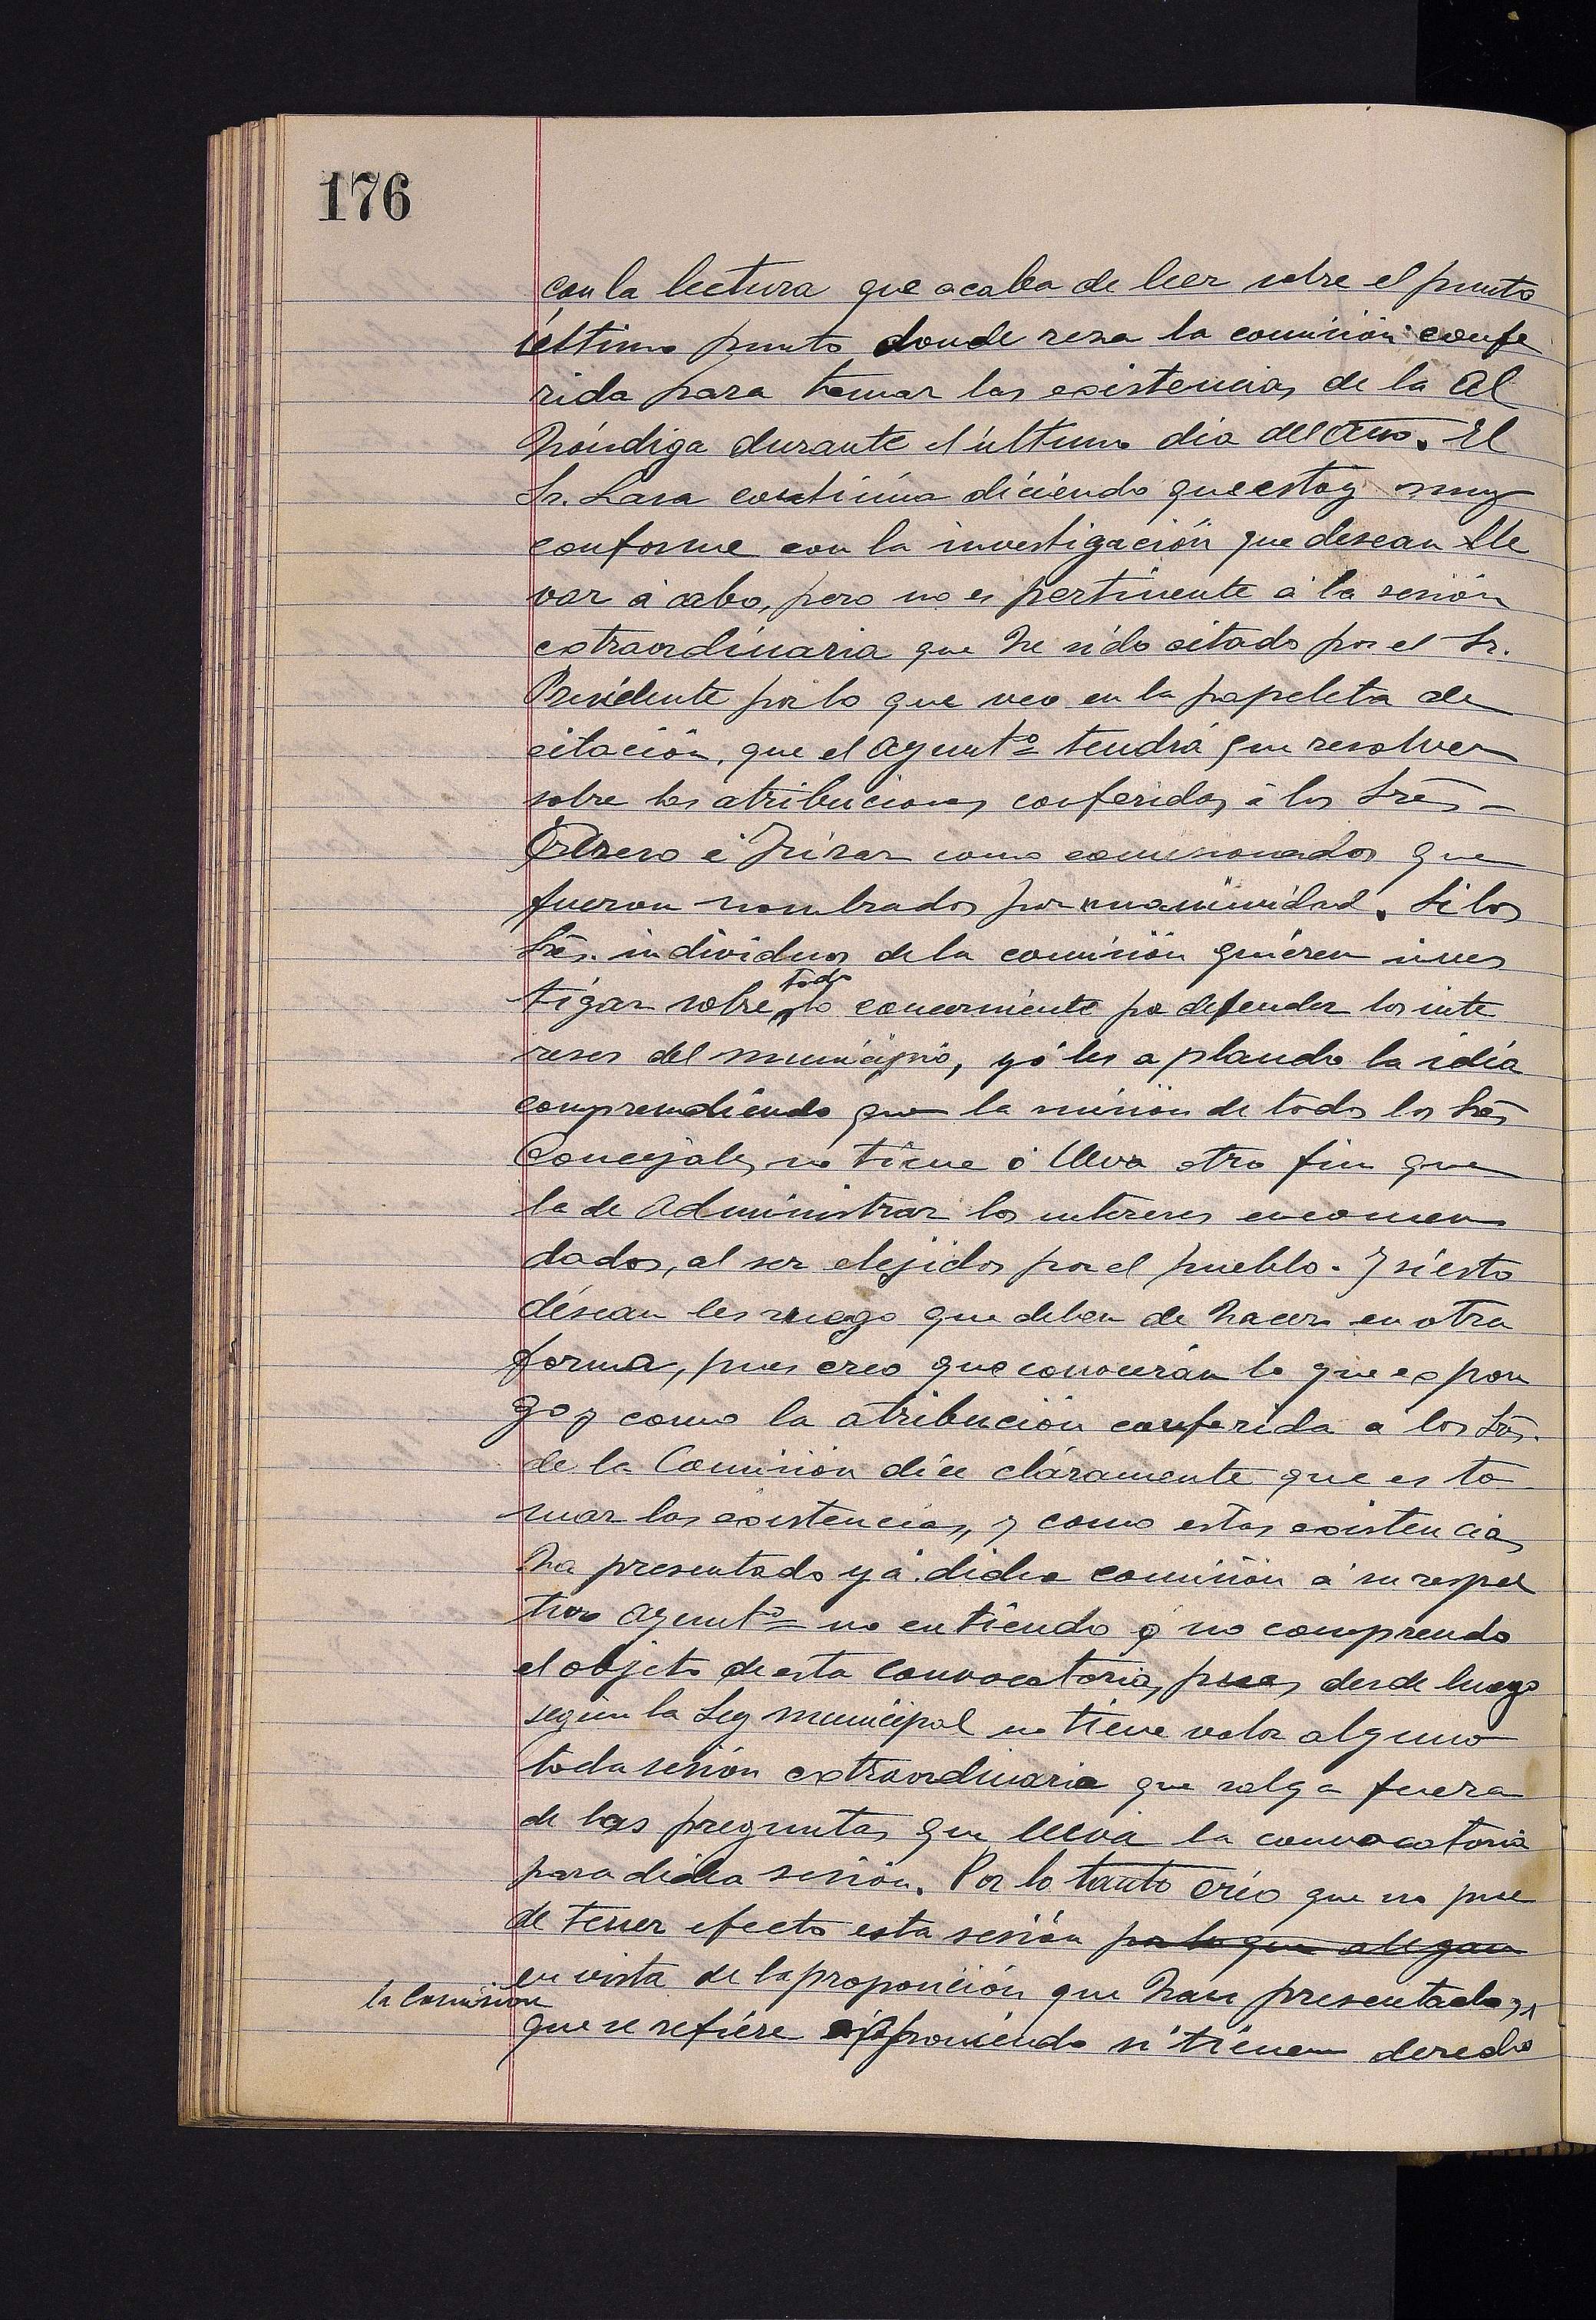 176
con la lectura que acaba de leer sobre el punto
último punto donde reza la comisión confe
rida para tomar las existencias de la Al
hóndiga durante el último dia del Año. El
Sr. Lasa continúa diciendo que estoy muy
conforme con la investigación que desean lle
var á cabo, pero no es pertinente á la sesión
extraordinaria que he sido citado por el Sr.
Presidente por lo que veo en la papeleta de
citación, que el Ayuntº tendrá que resolver
sobre las atribuciones conferidas á los Sres
é como comisionados que
fueron nombrados por unanimidad. Si los
Sres. individuos de la comisión quieren inves
todo
tigar sobre lo concerniente pa defender los inte
reses del municipio, yó les a plaudo la idéa
comprendiendo que la misión de todos los Sres
Concejales no tiene ó lleva otro fin que
la de Administrar los intereses encomen
dados, al ser elejidos por el pueblo. Y si esto
désean les ruego que deben de hacer en otra
forma, pues creo que conocerán lo que expon
go y como la atribución conferida a los Sres.
de la Comisión díce cláramente que es to
mar las existencias, y como estas existencias
ha presentado yá dicha comisión á su respec
tivo Ayuntº no entiendo ó no comprendo
el objeto de esta convocatoria, pues desde luego
según la Ley municipal no tiene valor alguno
toda sesión extraordinaria que salga fuera
de las preguntas que lleva la convocatoria
para dicha sesión. Por lo tanto créo que no pue
de tener efecto esta sesión por lo que alegan
en vista de la proposición que han presentado,
la Comision
que se refiére exponiendo si tienen derecho